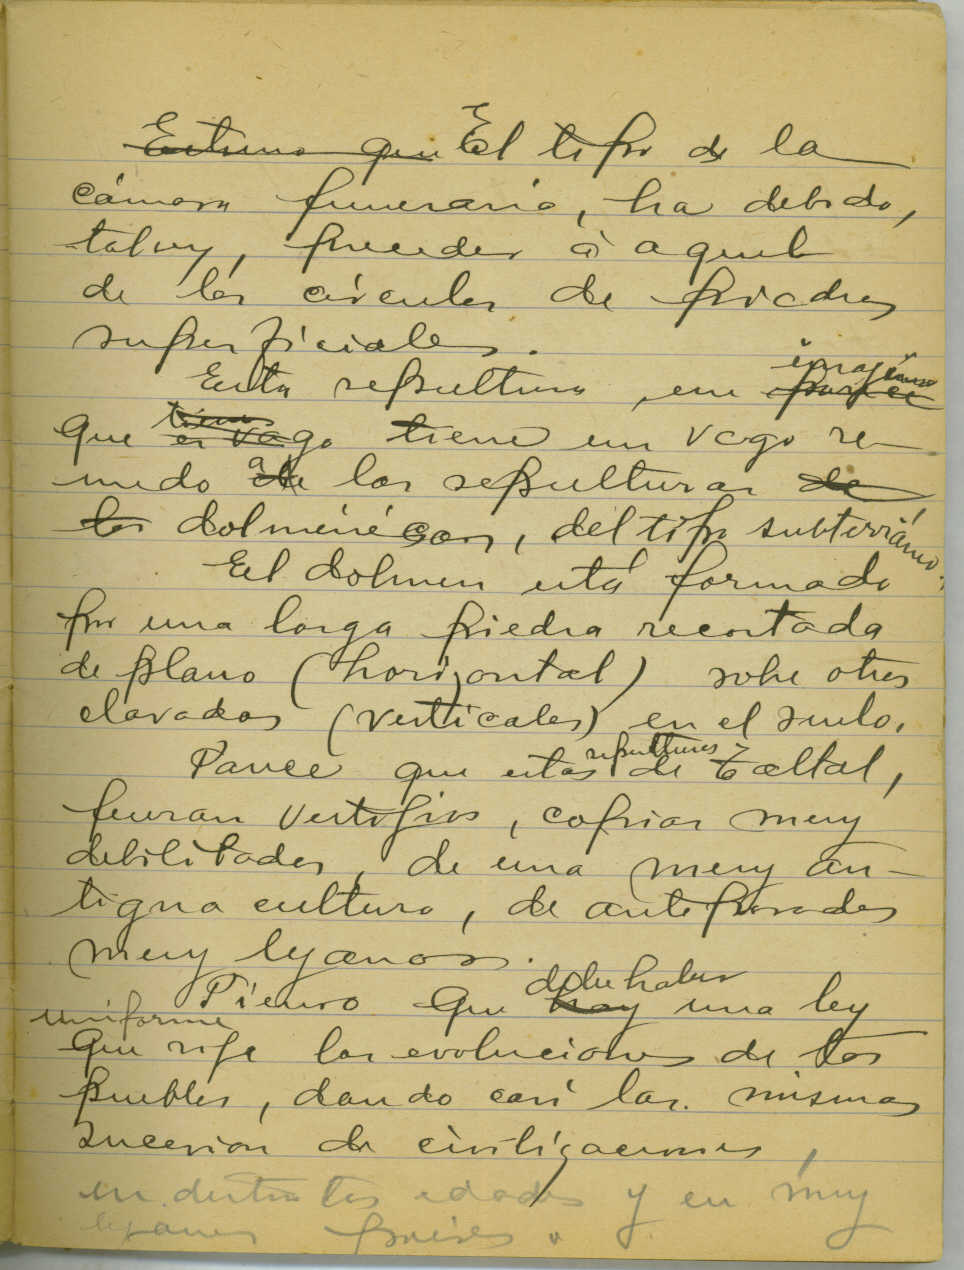 Estimo que El tipo de la
cámara funeraria, ha debido,
talvez, preceder á aquel
de los círculos de piedras
superficiales.
Esta sepultura, me parece imagino
que tiene es vago tiene un vago re-
medo a de las sepulturas de
los dolménicas, del tipo subterráneo.
El dolmen está formado
por una larga piedra recortada
de plano (horizontal) sobre otras
clavadas (verticales) en el suelo.
Parece que estas sepulturas de Taltal,
fueran vestigios, copias muy
debilitadas, de una muy an-
tigua cultura, de antepasados
muy lejanos.
Pienso que hay debe haber una ley
uniforme
que rige las evoluciones de los
pueblos, dando casi las mismas
sucesion de civilizaciones,
en distintas edades y en muy
lejanos paises.